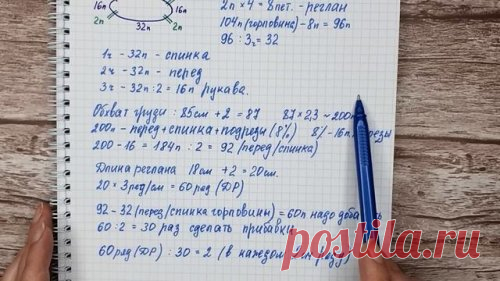 16п 16п
2п 32п 2п
2п x 4 = 8пет. - реглан
104п (горловина) - 8п = 96п
96 : 3ч = 32
1ч - 32п - спинка
2ч - 32п - перед
3ч - 32п : 2 = 16п рукава.
Обхват груди : 85см + 2 = 87 87 x 2,3 ~ 200п
200п - перед + спинка + подрезы (8%) 8% - 16п
200 - 16 = 184п : 2 = 92 (перед/спинка)
Длина реглана 18см + 2 = 20см.
20 x 3ряд/см = 60ряд (ДР)
92 - 32 (перед/спинка горловины) = 60п надо
60 : 2 = 30 раз сделать прибавки
60ряд (ДР) : 30 = 2 (в каждом
posti.ru